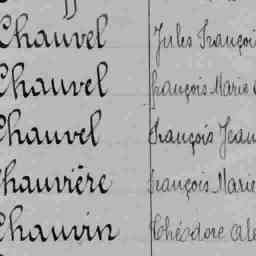 Chauvel Jules François
Chauvel François Marie
Chauvel François Jean
Chauvière François Marie
Chauvin Théodore Ale